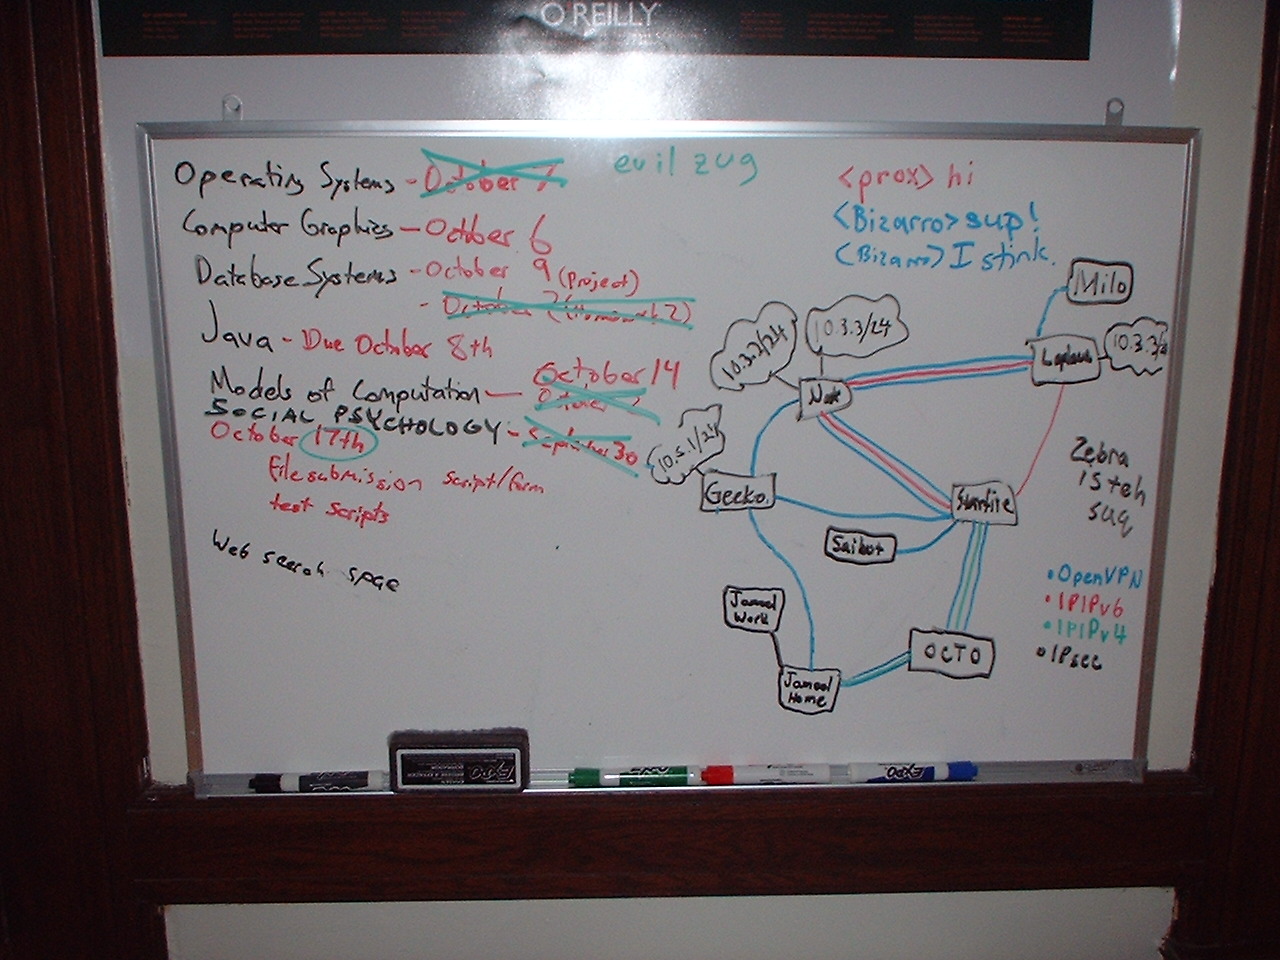 O'REILLY
Operating Systems - October 7
Computer Graphics - October 6
Database Systems - October 9 (Project)
- October 2 (Homework 2)
Java - Due October 8th
Models of Computation - October 14
October
SOCIAL PSYCHOLOGY - September 30
October 17th
File submission script/form
test scripts
Web search space
evil zug
<prox> hi
<Bizarro> sup!
<Bizarro> I stink.
Milo
10.3.2/24
10.3.3/24
10.3.3/
10.5.1/24
Gecko
Saibot
Jamool
Work
Jamool
Home
OCTO
Zebra
is teh
suq
• OpenVPN
• IPIPv6
• IPIPv4
• IPsec
EXPO
EXPO